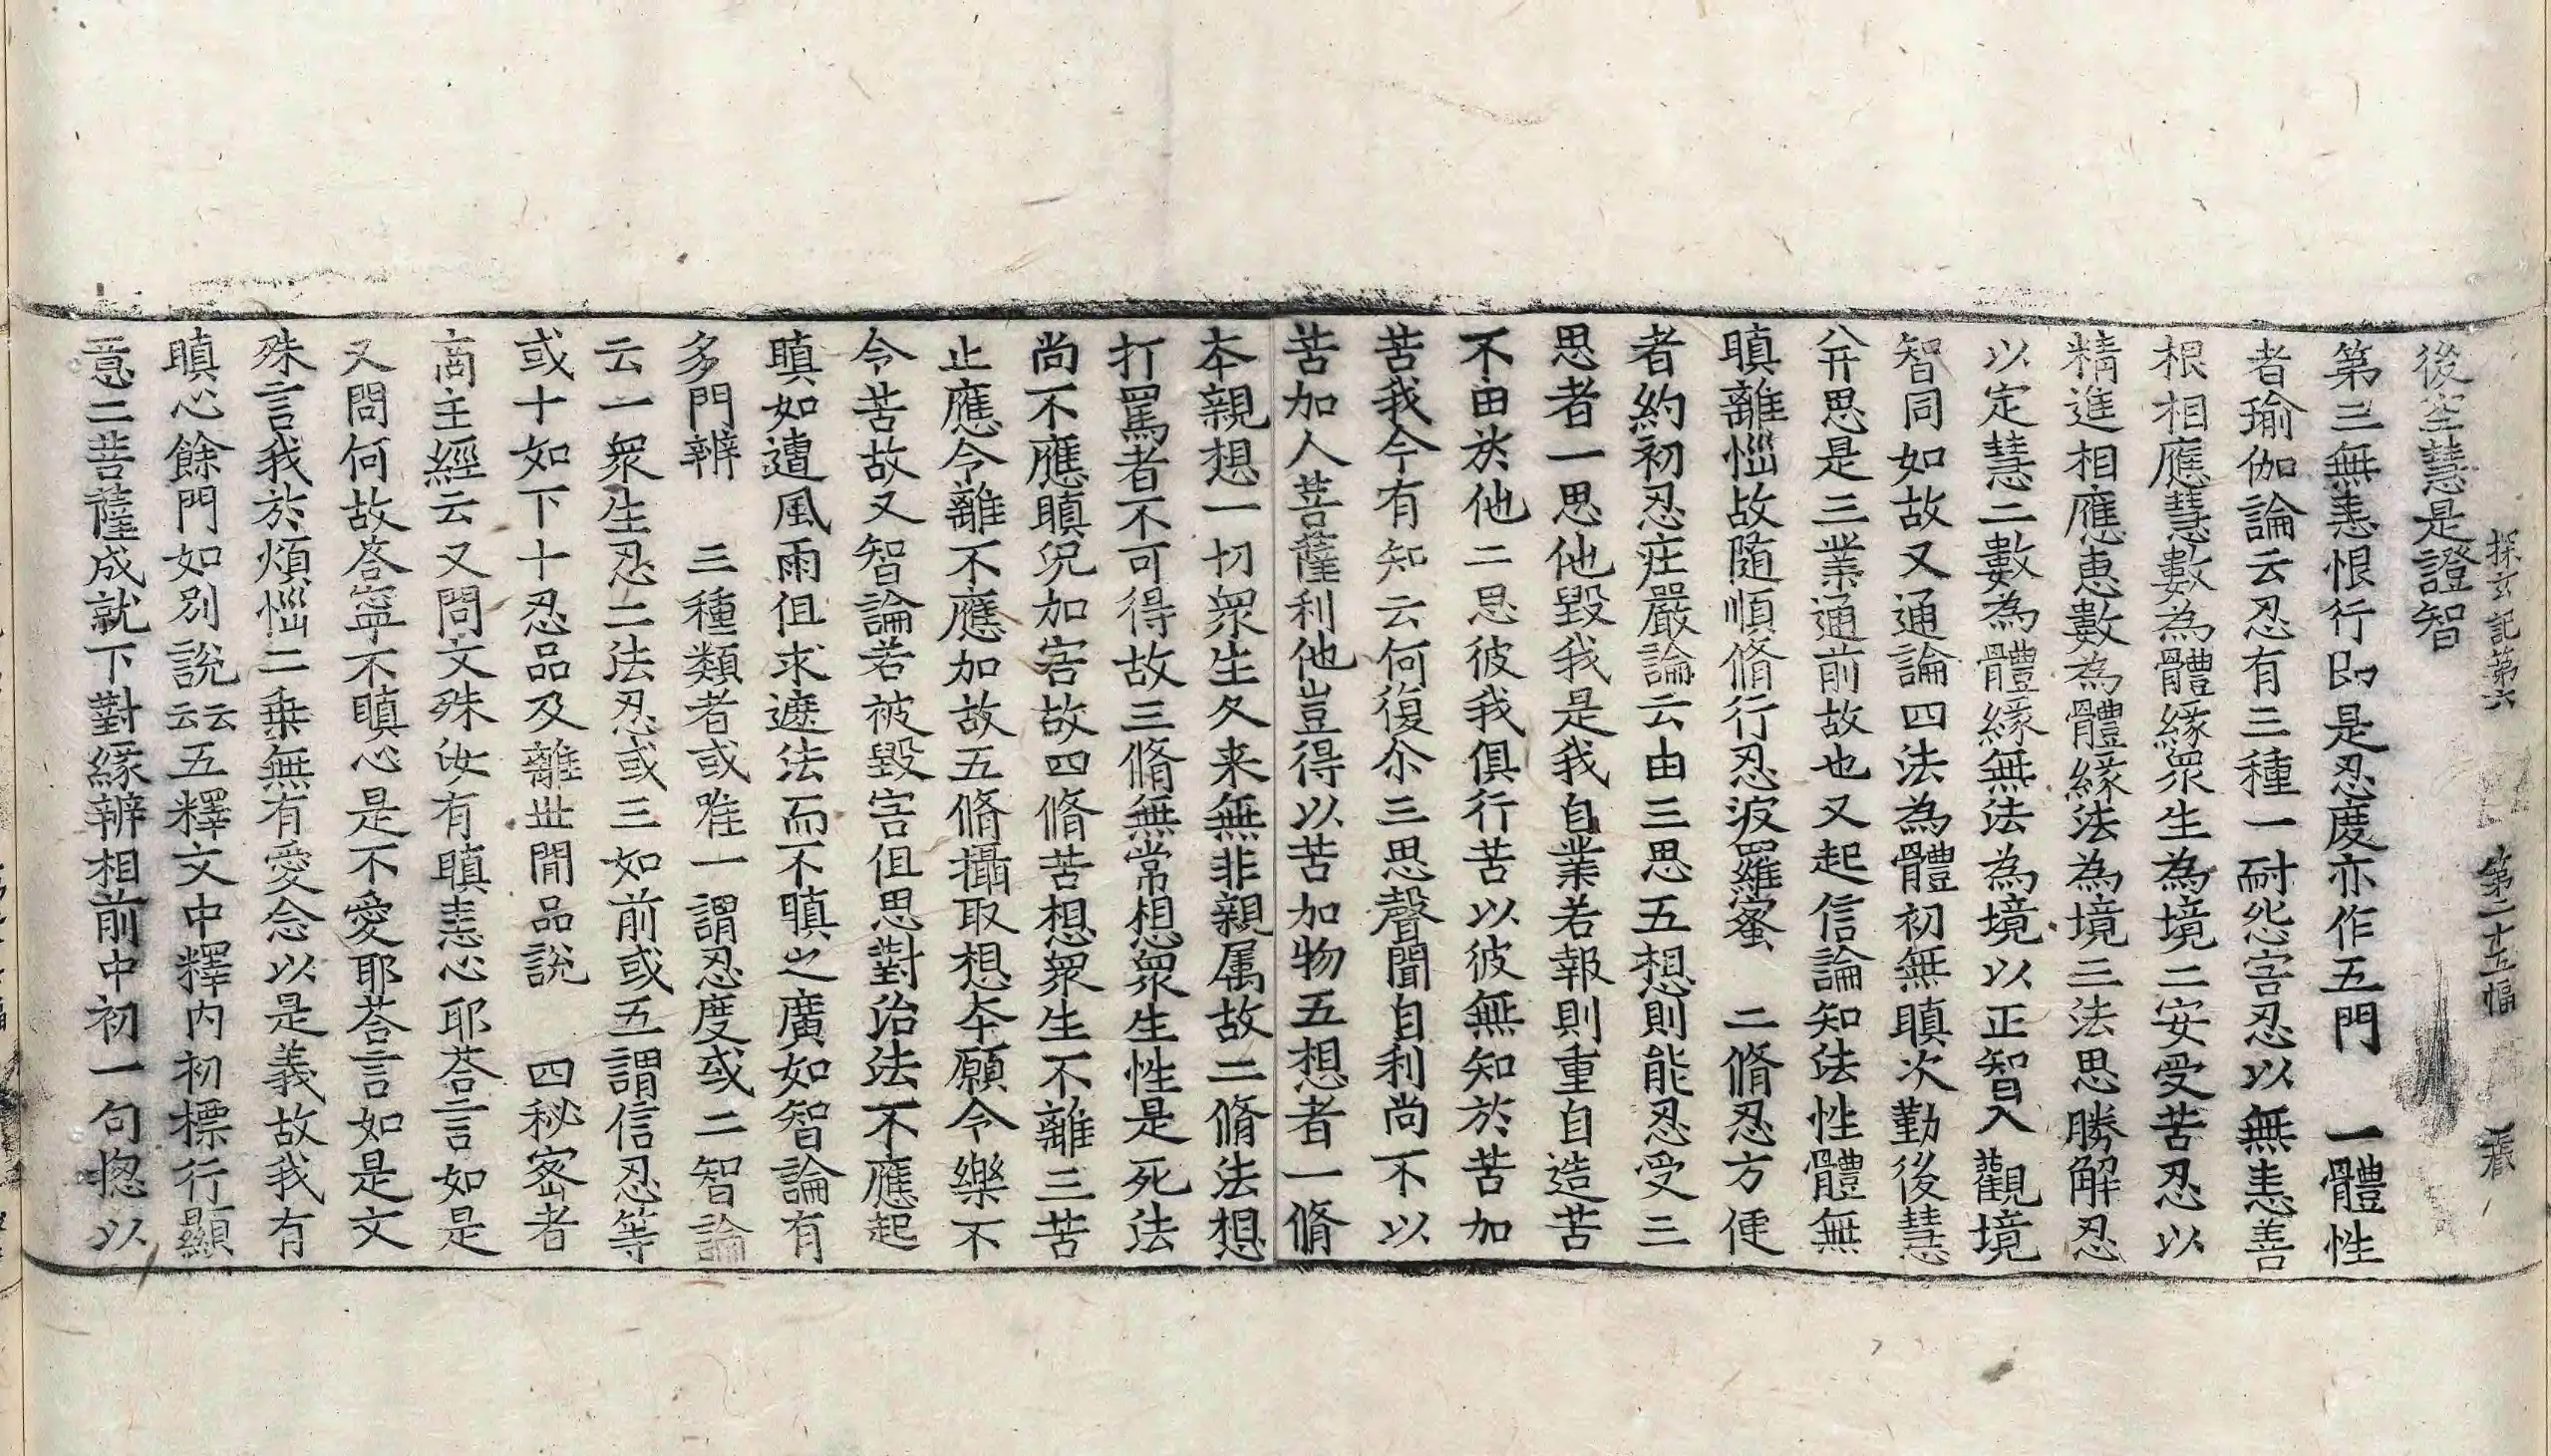 探玄記第六 第二十五幅
後空慧是證智
第三無恚恨行即是忍度亦作五門 一體性
者瑜伽論云忍有三種一耐怨害忍以無恚善
根相應慧數為體緣衆生為境二安受苦忍以
精進相應惠數為體緣法為境三法思勝解忍
以定慧二數為體緣無法為境以正智入觀境
智同如故又通論四法為體初無瞋次勤後慧
并思是三業通前故也又起信論知法性體無
瞋離惱故随順脩行忍波羅蜜 二脩忍方便
者約初忍庄嚴論云由三思五想則能忍受三
思者一思他毀我是我自業若報則重自造苦
不由於他二思彼我俱行苦以彼無知於苦加
苦我今有知云何復尒三思聲聞自利尚不以
苦加人菩薩利他豈得以苦加物五想者一脩
本親想一切衆生久来無非親属故二脩法想
打罵者不可得故三脩無常想衆生性是死法
尚不應瞋況加害故四脩苦想衆生不離三苦
止應令離不應加故五脩攝取想本願令樂不
令苦故又智論若被毀害但思對治法不應起
瞋如遭風雨但求遮法而不瞋之廣如智論有
多門辨 三種類者或唯一謂忍度或二智論
云一衆生忍二法忍或三如前或五謂信忍等
或十如下十忍品及離世間品說 四秘密者
商主經云又問文殊汝有瞋恚心耶荅言如是
又問何故荅寧不瞋心是不愛耶荅言如是文
殊言我於煩惱二乗無有愛念以是義故我有
瞋心餘門如別說云云五釋文中釋内初標行顯
意二菩薩成就下對緣辨相前中初一句揔以